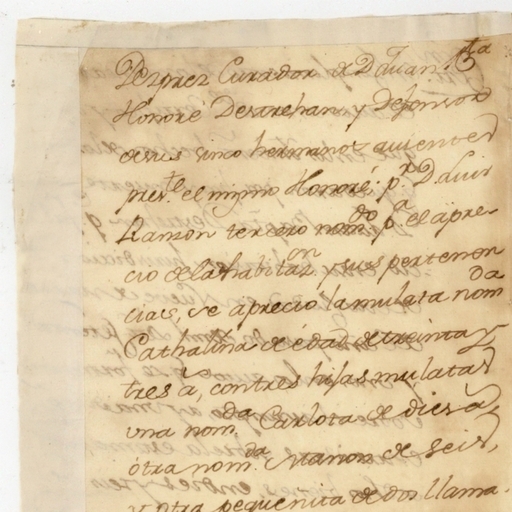 Dezprez Curador de D.n Juan B.ta
Honoré Destrehan, y Defensor
de sus sinco hermanos quienes
pres.te el mismo Honoré: p.r D. Luis
Ranson tersero nom.do p.a el apre-
cio de la habitaz.on y sus pertenen
cias, se aprecio la mulata nom.da
Cathalina de édad de treinta y
tres a.s, con tres hijas mulatas
una nom.da Carlota de dies a.s
ótra nom.da Manon de seis,
y otra pequenita de dos llama-